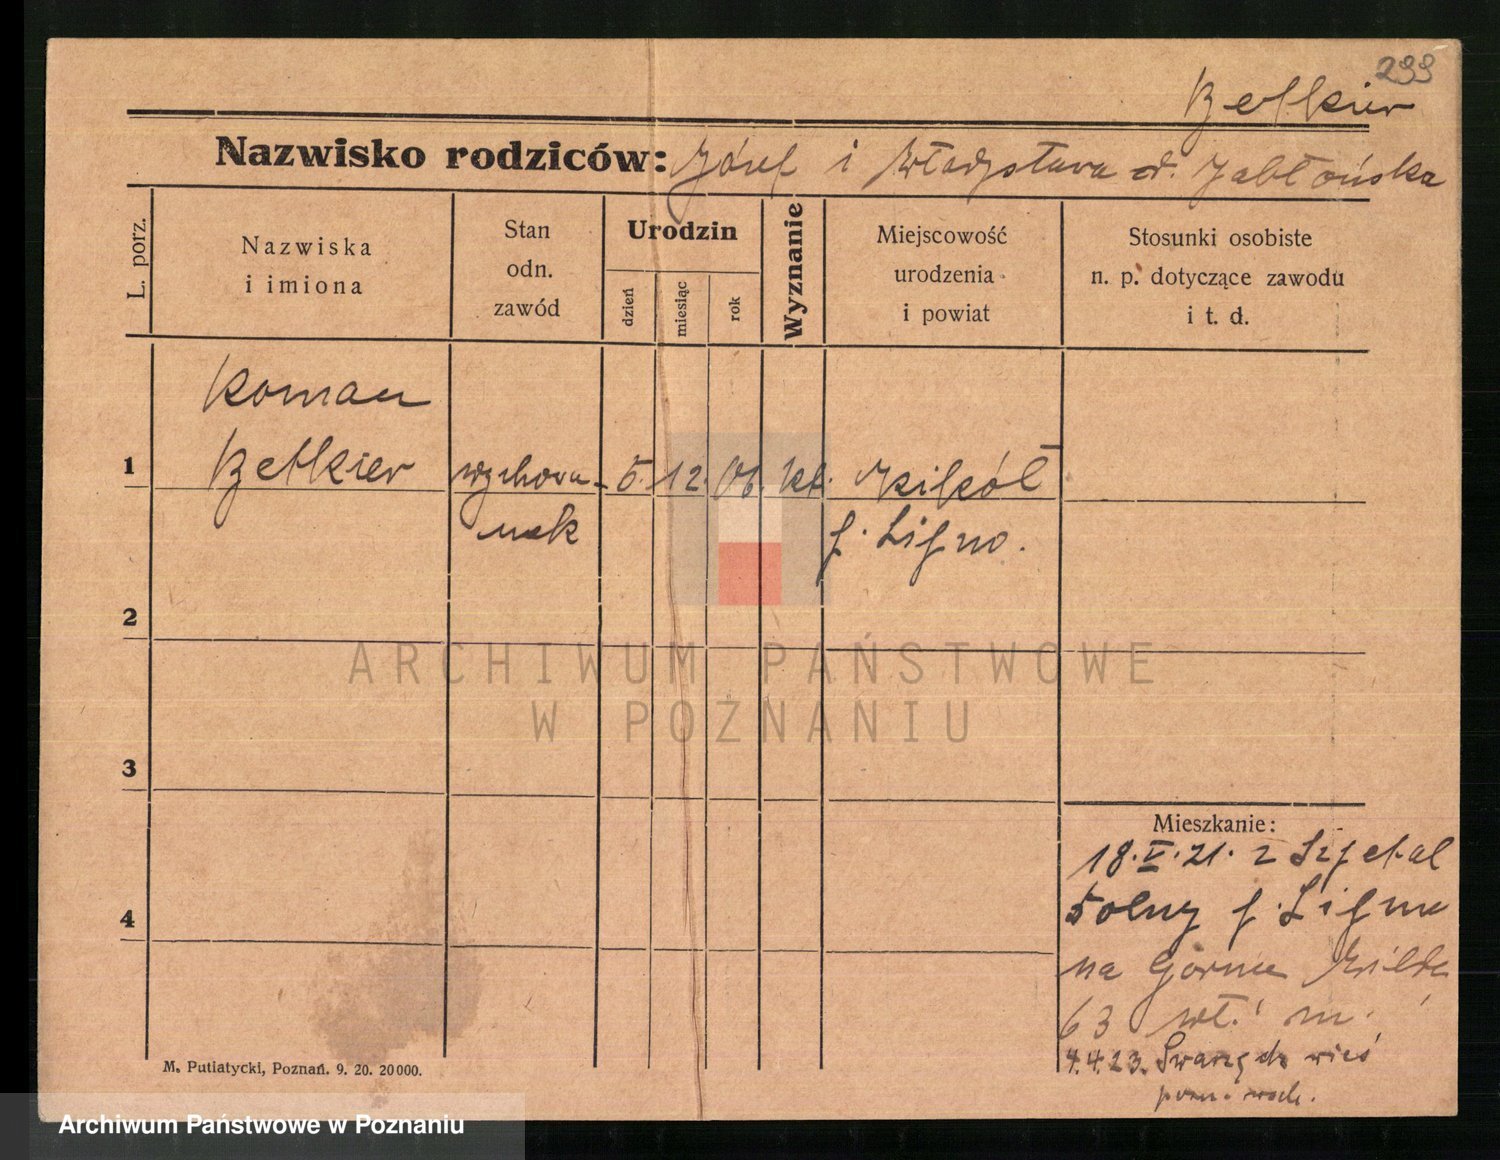 299
Betkier
Nazwisko rodziców: Józef i Władysława d. Jabłońska
L. porz.
Nazwiska
i imiona
Stan
odn.
zawód
Urodzin
dzień
miesiąc
rok
Wyznanie
Miejscowość
urodzenia
i powiat
Stosunki osobiste
n. p. dotyczące zawodu
i t. d.
Roman
1 Betkier wychowa- 5. 12. 06. kt. Kikół
nek p. Lipno.
2
3
4
Mieszkanie:
18.V.21. z Szpetal
Dolny p. Lipno
na Górna Wilda
63 wł. m.
4.4.23. Swarzędz wieś
M. Putiatycki, Poznań. 9. 20. 20000.
ARCHIWUM PAŃSTWOWE
W POZNANIU
Archiwum Państwowe w Poznaniu